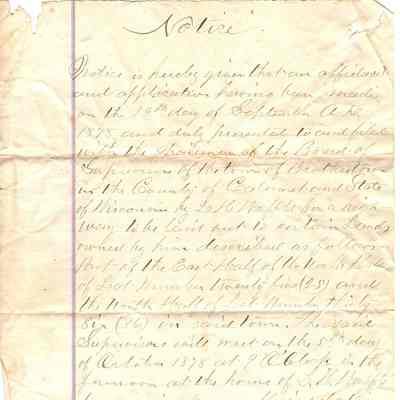 Notice.
Notice is hereby given that an affidavit
and application having been made
on the 19th day of September A.D.
1878 and duly presented to and filed
with the Chairman of the Board of
Supervisors of the town of Brothertown
in the County of Calumet and State
of Wisconsin by L. H. for a high
way to be laid out to certain Lands
owned by him described as follows
Part of the East Half of the
of Lot Number twenty five (25) and
the North Half of Lot Number thirty
Six (36) in said town. The said
Supervisors will meet on the 5th day
of October 1878 at 9 O Clock in the
forenoon at the home of L. H.